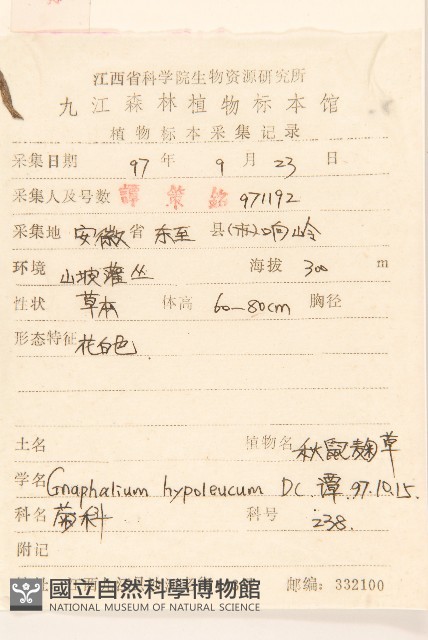 江西省科学院生物资源研究所
九江森林植物标本馆
植物标本采集记录
采集日期 97 年 9 月 23 日
采集人及号数 譚策銘 971192
采集地 安徽 省 东至 县(市) 响岭
环境 山坡灌丛 海拔 300 m
性状 草本 体高 60—80cm 胸径
形态特征 花白色
土名 植物名 秋鼠麴草
学名 Gnaphalium hypoleucum DC. 譚 97.10.15.
科名 菊科 科号 238.
附记
邮编: 332100
國立自然科學博物館
NATIONAL MUSEUM OF NATURAL SCIENCE